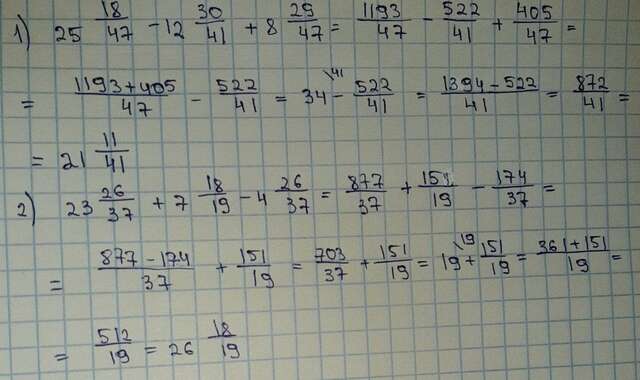 1) 25 18/47 - 12 30/41 + 8 29/47 = 1193/47 - 522/41 + 405/47 =
= (1193+405)/47 - 522/41 = 34\41 - 522/41 = (1394-522)/41 = 872/41 =
= 21 11/41
2) 23 26/37 + 7 18/19 - 4 26/37 = 877/37 + 151/19 - 174/37 =
= (877-174)/37 + 151/19 = 703/37 + 151/19 = 19\19 + 151/19 = (361+151)/19 =
= 512/19 = 26 18/19